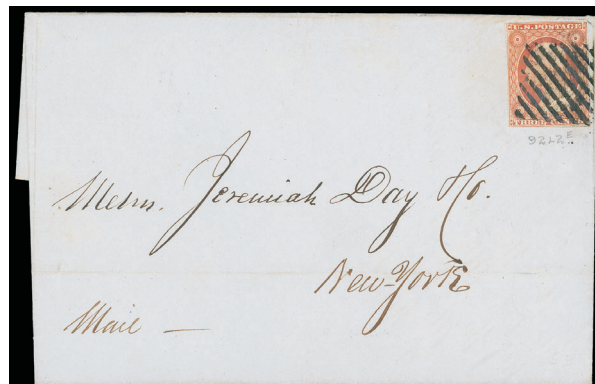 U.S. POSTAGE
THREE
92L2E
Messrs. Jeremiah Day & Co.
New-York
Mail —